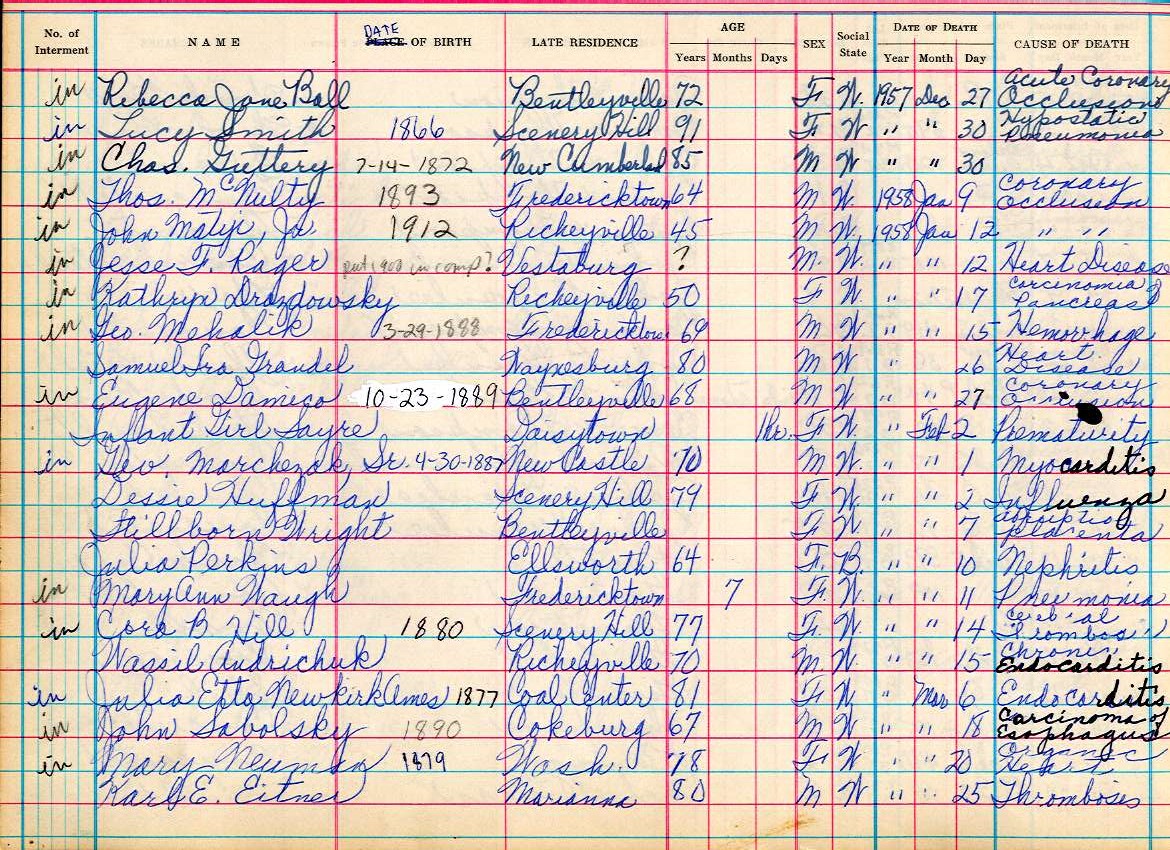 No. of Interment NAME DATE PLACE OF BIRTH LATE RESIDENCE AGE Years Months Days SEX Social State DATE OF DEATH Year Month Day CAUSE OF DEATH
in Rebecca Jane Ball Bentleyville 72 F W. 1957 Dec 27 Acute Coronary Occlusion
in Lucy Smith 1866 Scenery Hill 91 F W " " 30 Hypostatic Pneumonia
in Chas. Guttery 7-14-1872 New Cumberland 85 M W " " 30
in Thos. McNulty 1893 Fredericktown 64 M W. 1958 Jan 9 Coronary Occlusion
in John Matyi, Jr. 1912 Richeyville 45 M W. 1958 Jan 12 " " "
in Jesse F. Rager put 1900 in comp? Vestaburg ? M. W. " " 12 Heart Disease
in Kathryn Drozdowsky Richeyville 50 F W. " " 17 Carcinoma of Pancreas
in Geo. Mehalik 3-29-1888 Fredericktown 69 M W " " 15 Hemorrhage
Samuel Ira Grandel Waynesburg 80 M W. " " 26 Heart Disease
in Eugene Damico 10-23-1889 Bentleyville 68 M W " " 27 Coronary Occlusion
Infant Girl Sayre Daisytown 1hr. F W. " Feb 2 Prematurity
in Geo. Marchezak, Sr. 4-30-1887 New Castle 70 M W. " " 1 Myocarditis
Dessie Huffman Scenery Hill 79 F W. " " 2 Influenza
Stillborn Wright Bentleyville F W. " " 7 placenta
Julia Perkins Ellsworth 64 F. B. " " 10 Nephritis
in Mary Ann Waugh Fredericktown 7 F W. " " 11 Pneumonia
in Cora B. Hill 1880 Scenery Hill 77 F. W. " " 14 Cerebral Thrombosis
Wassil Andrichuk Richeyville 70 M W. " " 15 Chronic Endocarditis
in Julia Etta Newkirk Ames 1877 Coal Center 81 F W " Mar 6 Endocarditis
in John Sabolsky 1890 Cokeburg 67 M W " " 18 Carcinoma of Esophagus
in Mary Neuman 1879 Wash. 78 F W " " 20 Organic Heart
Karl E. Eitner Marianna 80 M W " " 25 Thromboses